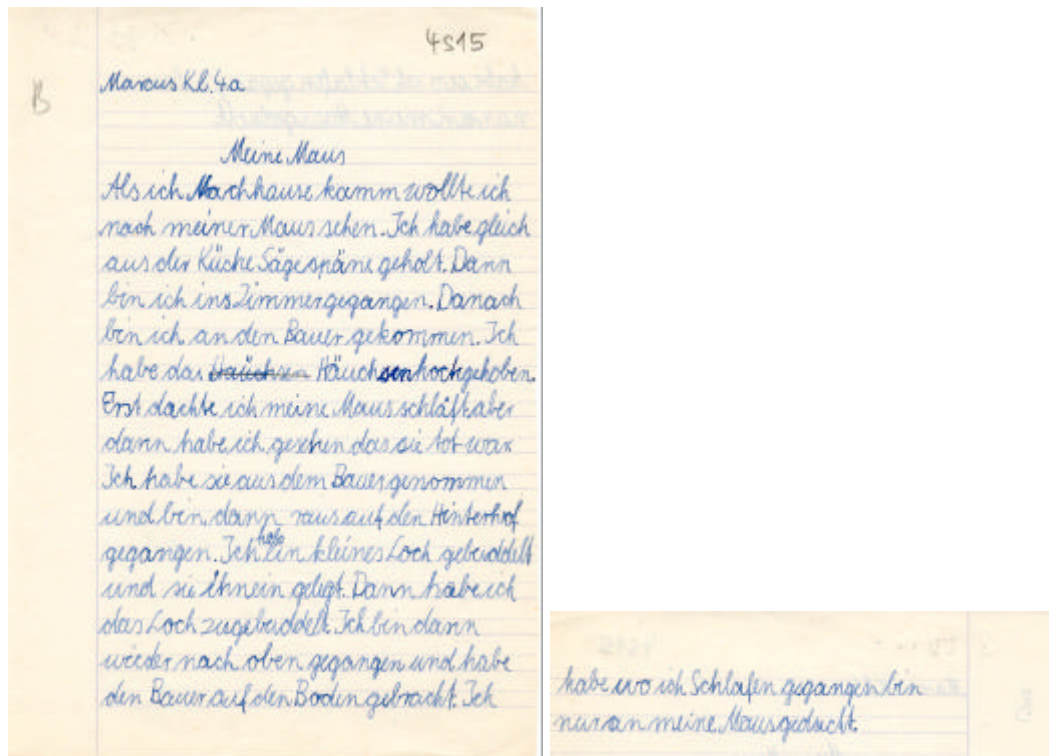 4S15
B
Marcus Kl. 4a
Meine Maus
Als ich Nachhause kamm wollte ich
nach meiner Maus sehen. Ich habe gleich
aus der Küche Sägespäne geholt. Dann
bin ich ins Zimmer gegangen. Danach
bin ich an den Bauer gekommen. Ich
habe das Häuchsen hochgehoben.
Erst dachte ich meine Maus schläft aber
dann habe ich gesehen das sie tot war
Ich habe sie aus dem Bauer genommen
und bin dann raus auf den Hinterhof
gegangen. Ich habe ein kleines Loch gebuddelt
und sie ihnein gelegt. Dann habe ich
das Loch zugebuddelt. Ich bin dann
wieder nach oben gegangen und habe
den Bauer auf den Boden gebracht. Ich
habe wo ich Schlafen gegangen bin
nur an meine Maus gedacht.